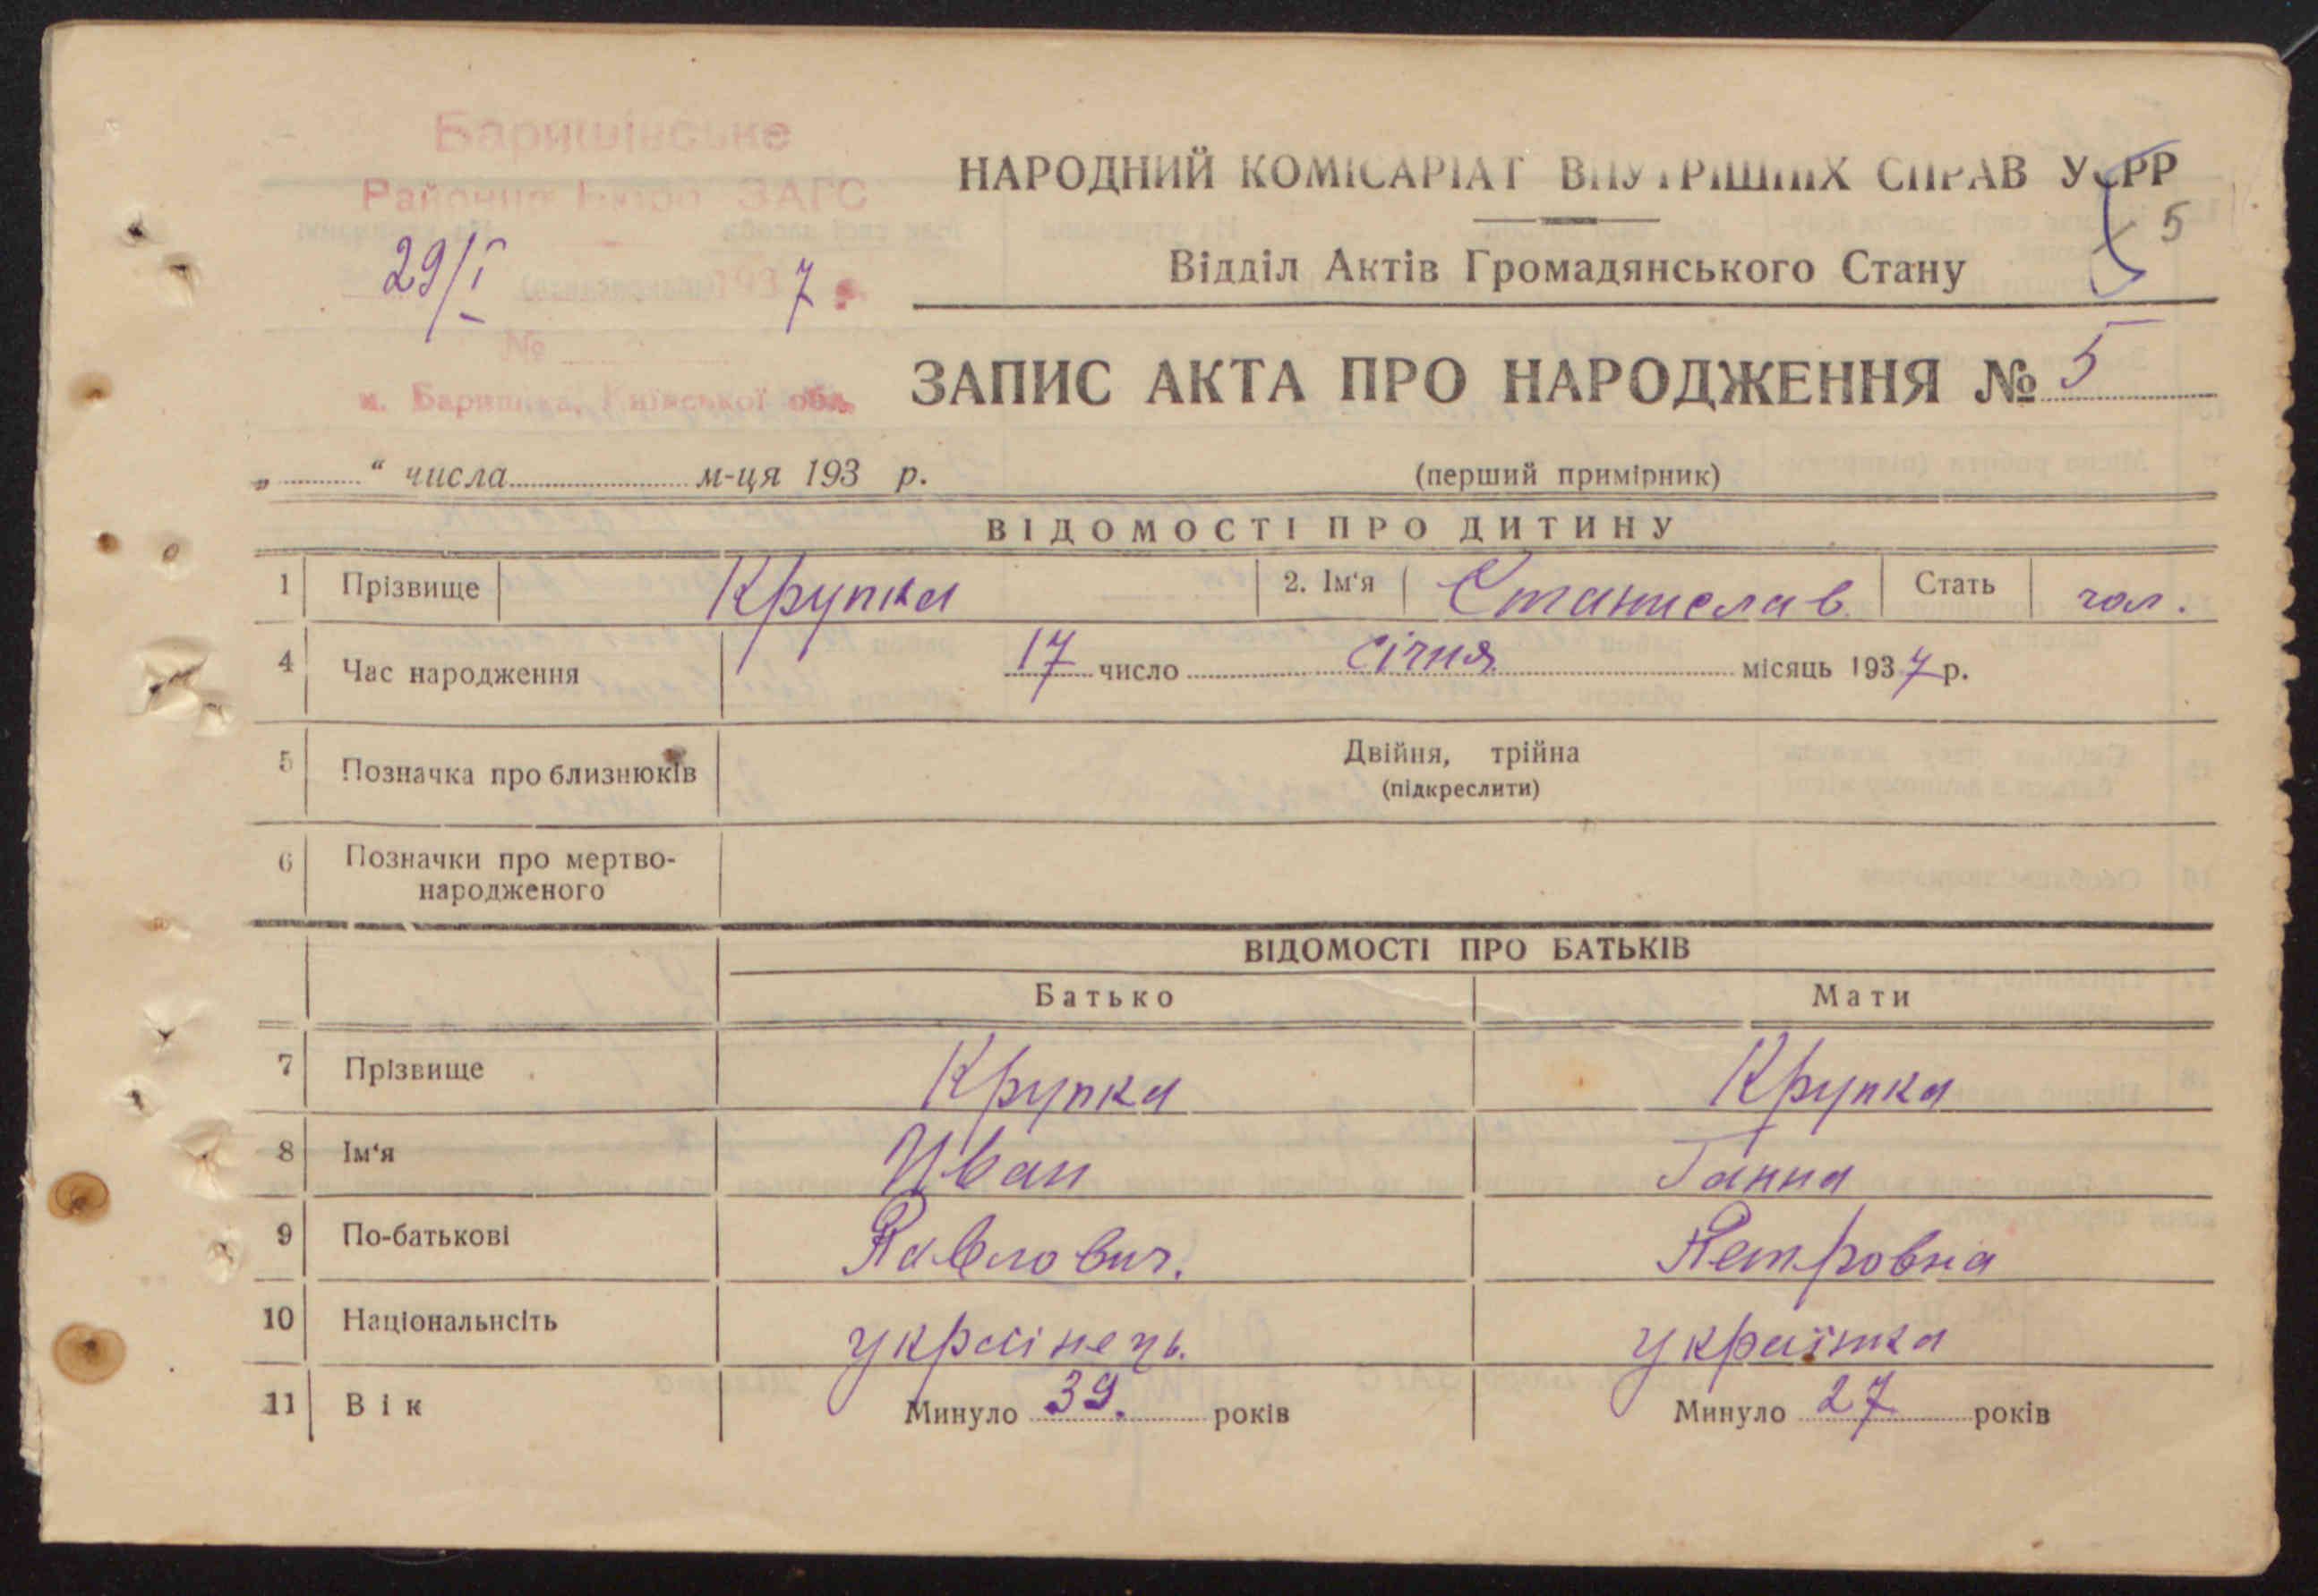 Баришівське
Районне Бюро ЗАГС
29/I 1937 р.
№
м. Баришівка, Київської обл.
НАРОДНИЙ КОМІСАРІАТ ВНУТРІШНІХ СПРАВ УСРР
5
Відділ Актів Громадянського Стану
ЗАПИС АКТА ПРО НАРОДЖЕННЯ № 5
„ “ числа м-ця 193 р.
(перший примірник)
ВІДОМОСТІ ПРО ДИТИНУ
1 Прізвище Крупка 2. Ім‘я Станислав Стать чол.
4 Час народження 17 число січня місяць 1937 р.
5 Позначка про близнюків Двійня, трійна
(підкреслити)
6 Позначки про мертво-
народженого
ВІДОМОСТІ ПРО БАТЬКІВ
Батько Мати
7 Прізвище Крупка Крупка
8 Ім‘я Иван Ганна
9 По-батькові Павлович. Петровна
10 Національнсіть украінець. українка
11 Вік Минуло 39. років Минуло 27 років